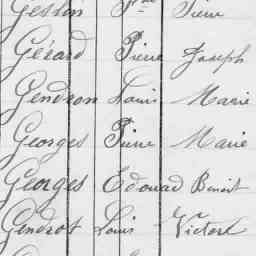 Geslin Pierre
Gérard Pierre Joseph
Gendron Louis Marie
Georges Pierre Marie
Georges Edouard Benoit
Gendrot Louis Victor